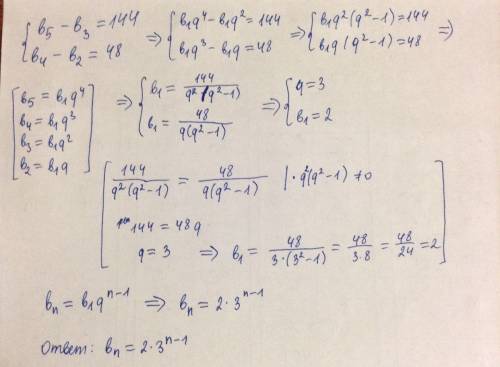 { b₅ − b₃ = 144 ⇒ { b₁q⁴ − b₁q² = 144 ⇒ { b₁q²(q²−1) = 144 ⇒
{ b₄ − b₂ = 48 { b₁q³ − b₁q = 48 { b₁q(q²−1) = 48
[ b₅ = b₁q⁴
b₄ = b₁q³
b₃ = b₁q²
b₂ = b₁q ]
⇒ { b₁ = 144 / q²(q²−1) ⇒ { q = 3
{ b₁ = 48 / q(q²−1) { b₁ = 2
[ 144 / q²(q²−1) = 48 / q(q²−1) | · q²(q²−1) ≠ 0
144 = 48q
q = 3 ⇒ b₁ = 48 / 3·(3²−1) = 48 / 3·8 = 48 / 24 = 2 ]
bₙ = b₁qⁿ⁻¹ ⇒ bₙ = 2·3ⁿ⁻¹
Ответ: bₙ = 2·3ⁿ⁻¹